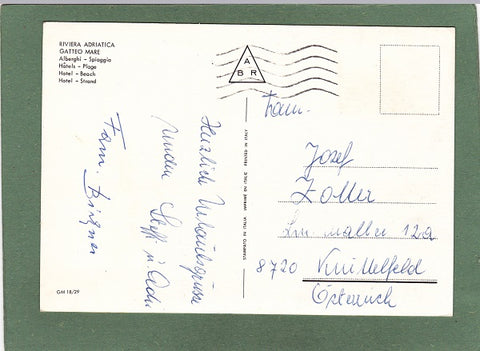 RIVIERA ADRIATICA
GATTEO MARE
Alberghi - Spiaggia
Hôtels - Plage
Hotel - Beach
Hotel - Strand
A
B R
Herzliche Urlaubsgrüsse
senden Steffi u.
Fam.
GEDRUCKT IN ITALIEN IMPRIMÉ EN ITALIE PRINTED IN ITALY
Fam.
Josef
Zoller
12a
8720 Knittelfeld
Österreich
GM 18/29